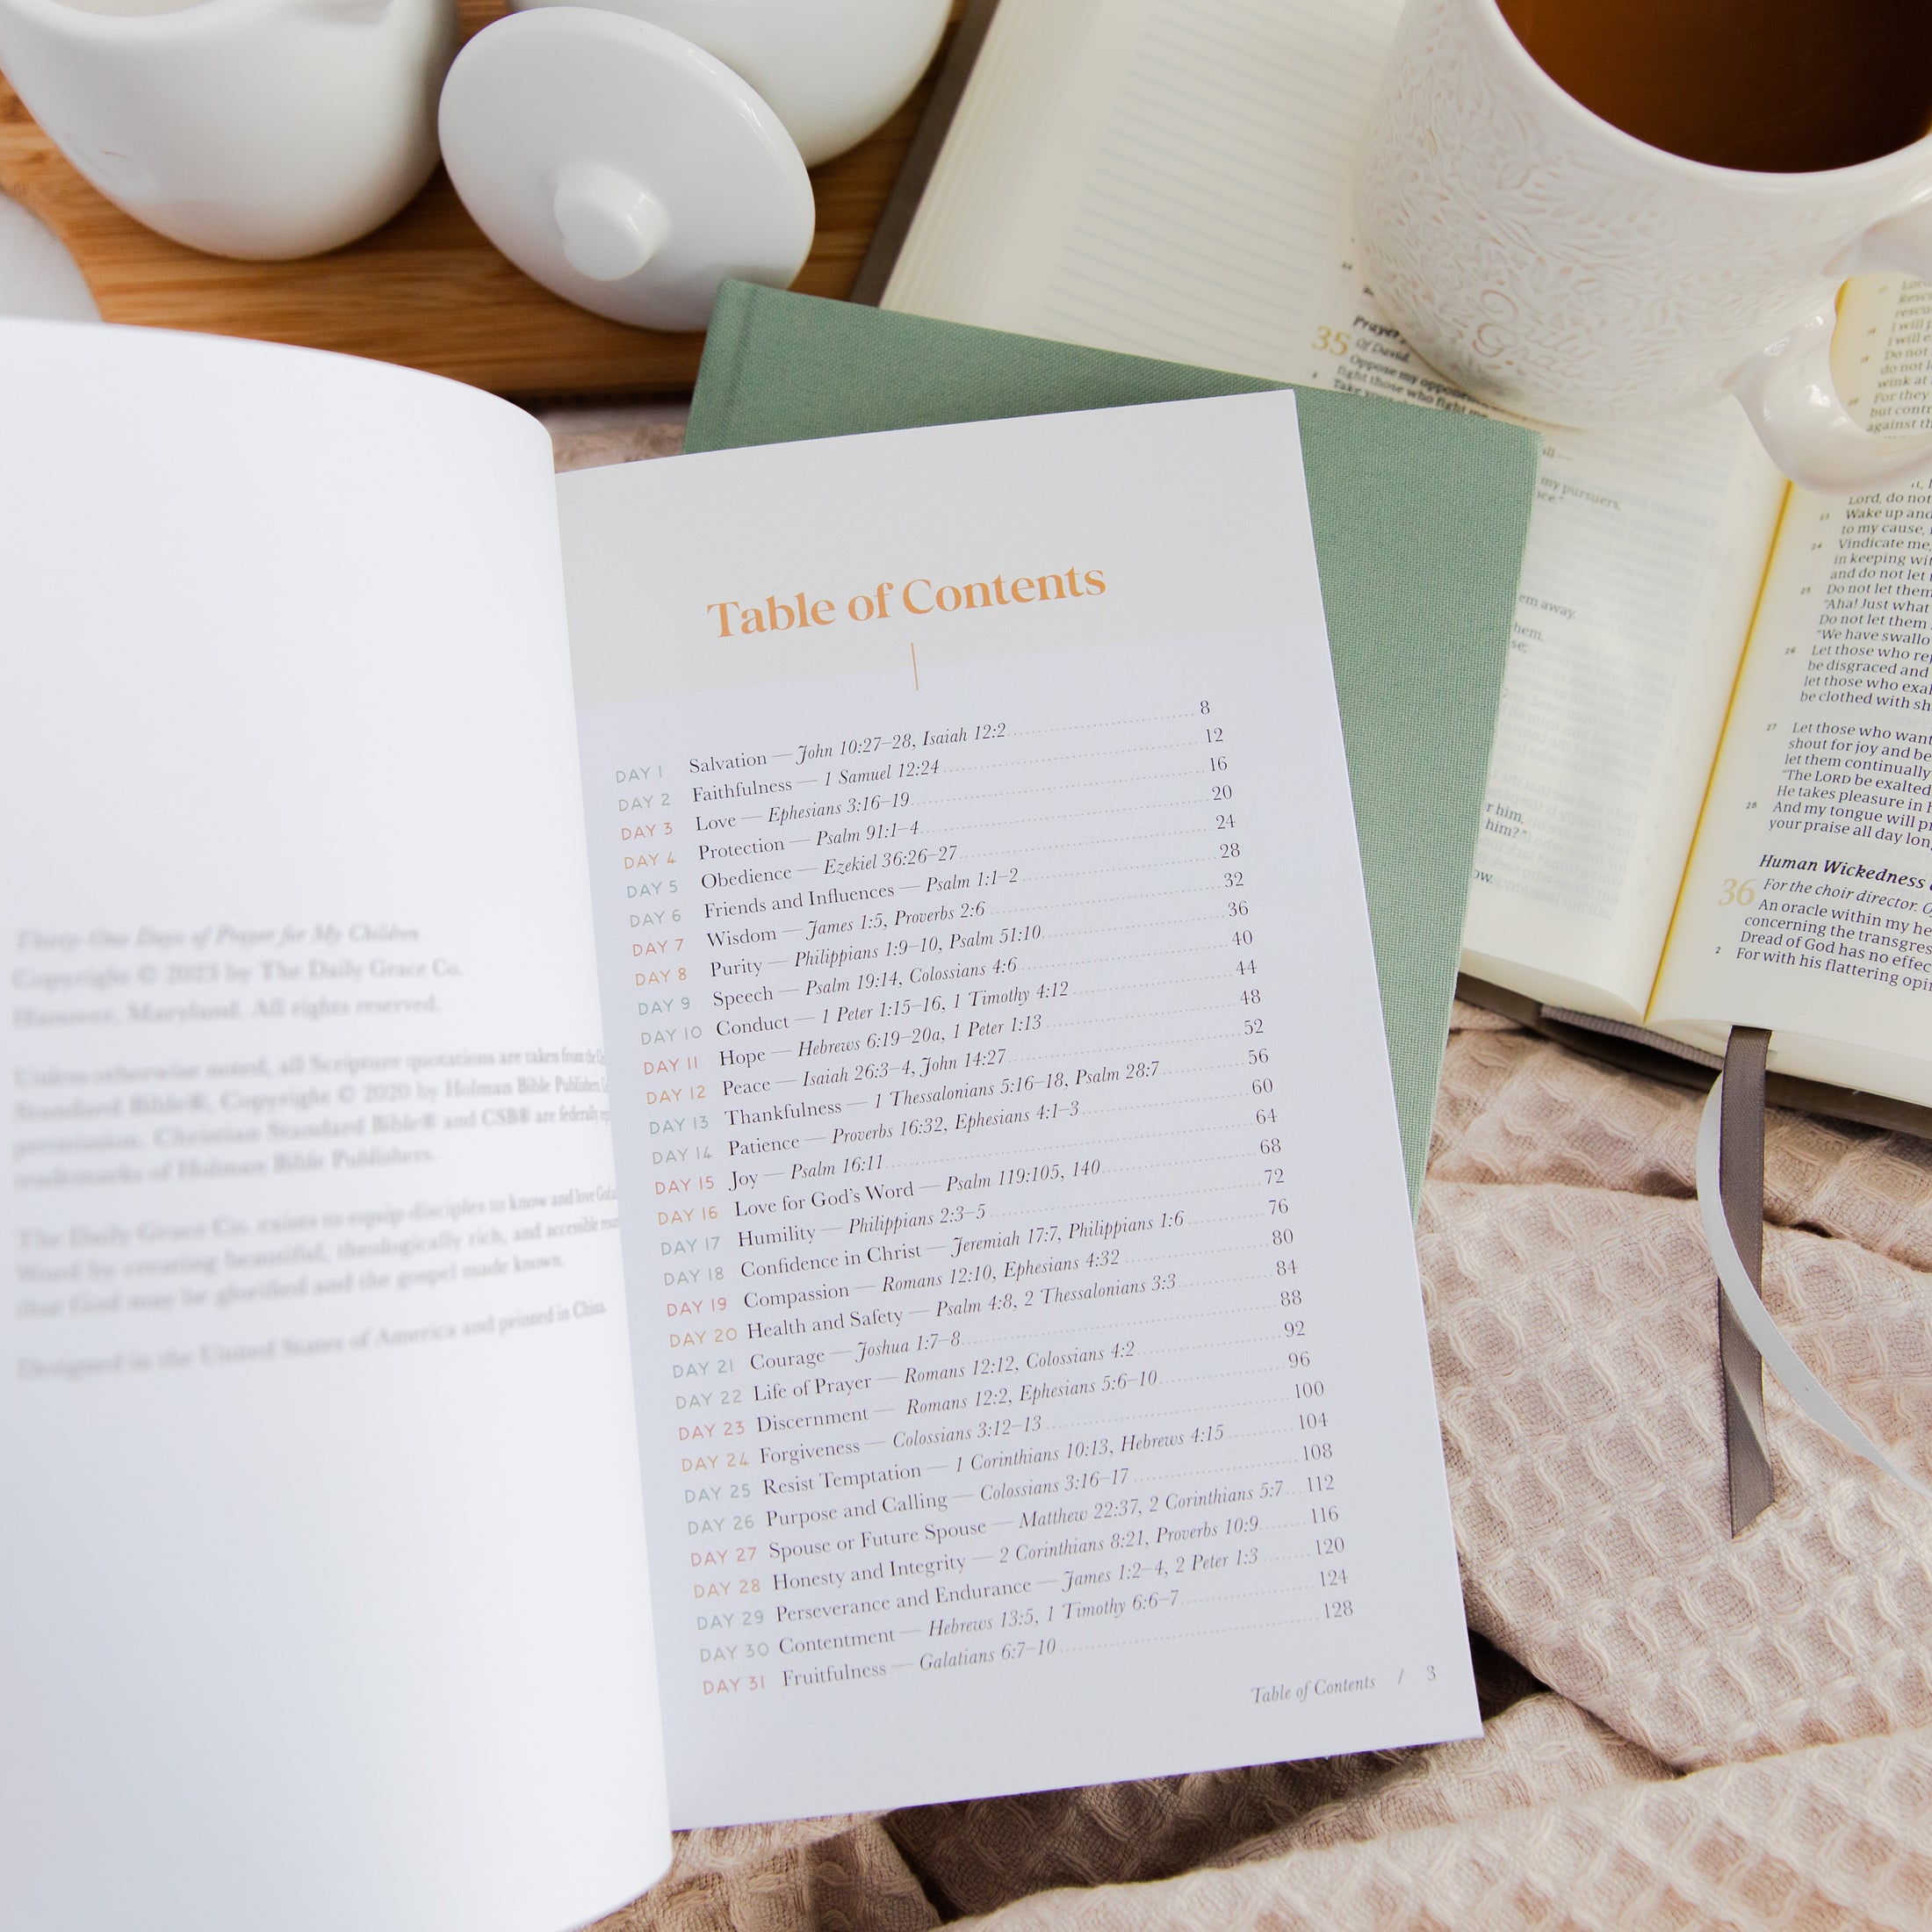 Thirty-One Days of Prayer for My Children
Copyright © 2023 by The Daily Grace Co.
Hanover, Maryland. All rights reserved.
Unless otherwise noted, all Scripture quotations are taken from the
Standard Bible®, Copyright © 2020 by Holman Bible Publishers
permission. Christian Standard Bible® and CSB® are federally
trademarks of Holman Bible Publishers.
The Daily Grace Co. exists to equip disciples to know and love God
Word by creating beautiful, theologically rich, and accessible
that God may be glorified and the gospel made known.
Designed in the United States of America and printed in China.
Table of Contents
DAY 1 Salvation — John 10:27–28, Isaiah 12:2 8
DAY 2 Faithfulness — 1 Samuel 12:24 12
DAY 3 Love — Ephesians 3:16–19 16
DAY 4 Protection — Psalm 91:1–4 20
DAY 5 Obedience — Ezekiel 36:26–27 24
DAY 6 Friends and Influences — Psalm 1:1–2 28
DAY 7 Wisdom — James 1:5, Proverbs 2:6 32
DAY 8 Purity — Philippians 1:9–10, Psalm 51:10 36
DAY 9 Speech — Psalm 19:14, Colossians 4:6 40
DAY 10 Conduct — 1 Peter 1:15–16, 1 Timothy 4:12 44
DAY 11 Hope — Hebrews 6:19–20a, 1 Peter 1:13 48
DAY 12 Peace — Isaiah 26:3–4, John 14:27 52
DAY 13 Thankfulness — 1 Thessalonians 5:16–18, Psalm 28:7 56
DAY 14 Patience — Proverbs 16:32, Ephesians 4:1–3 60
DAY 15 Joy — Psalm 16:11 64
DAY 16 Love for God's Word — Psalm 119:105, 140 68
DAY 17 Humility — Philippians 2:3–5 72
DAY 18 Confidence in Christ — Jeremiah 17:7, Philippians 1:6 76
DAY 19 Compassion — Romans 12:10, Ephesians 4:32 80
DAY 20 Health and Safety — Psalm 4:8, 2 Thessalonians 3:3 84
DAY 21 Courage — Joshua 1:7–8 88
DAY 22 Life of Prayer — Romans 12:12, Colossians 4:2 92
DAY 23 Discernment — Romans 12:2, Ephesians 5:6–10 96
DAY 24 Forgiveness — Colossians 3:12–13 100
DAY 25 Resist Temptation — 1 Corinthians 10:13, Hebrews 4:15 104
DAY 26 Purpose and Calling — Colossians 3:16–17 108
DAY 27 Spouse or Future Spouse — Matthew 22:37, 2 Corinthians 5:7 112
DAY 28 Honesty and Integrity — 2 Corinthians 8:21, Proverbs 10:9 116
DAY 29 Perseverance and Endurance — James 1:2–4, 2 Peter 1:3 120
DAY 30 Contentment — Hebrews 13:5, 1 Timothy 6:6–7 124
DAY 31 Fruitfulness — Galatians 6:7–10 128
Table of Contents / 3
Daily
Grace
Prayer
35 Of David.
Oppose my opponents
fight those who fight me
Take your
all —
my pursuers,
em away.
hem.
se;
r him,
him?"
ow.
rescue
I will
I will
Do not
do not
wink at
For they
but
against
Lord, do not
23 Wake up and
to my cause,
24 Vindicate me,
in keeping
and do not let
25 Do not let them
"Aha! Just what
Do not let them
"We have
26 Let those who
be disgraced and
let those who
be clothed with
27 Let those who want
shout for joy and be
let them continually
"The LORD be exalted
He takes pleasure in
28 And my tongue will
your praise all day
Human Wickedness
36 For the choir director.
An oracle within my
concerning the
Dread of God has no
2 For with his flattering